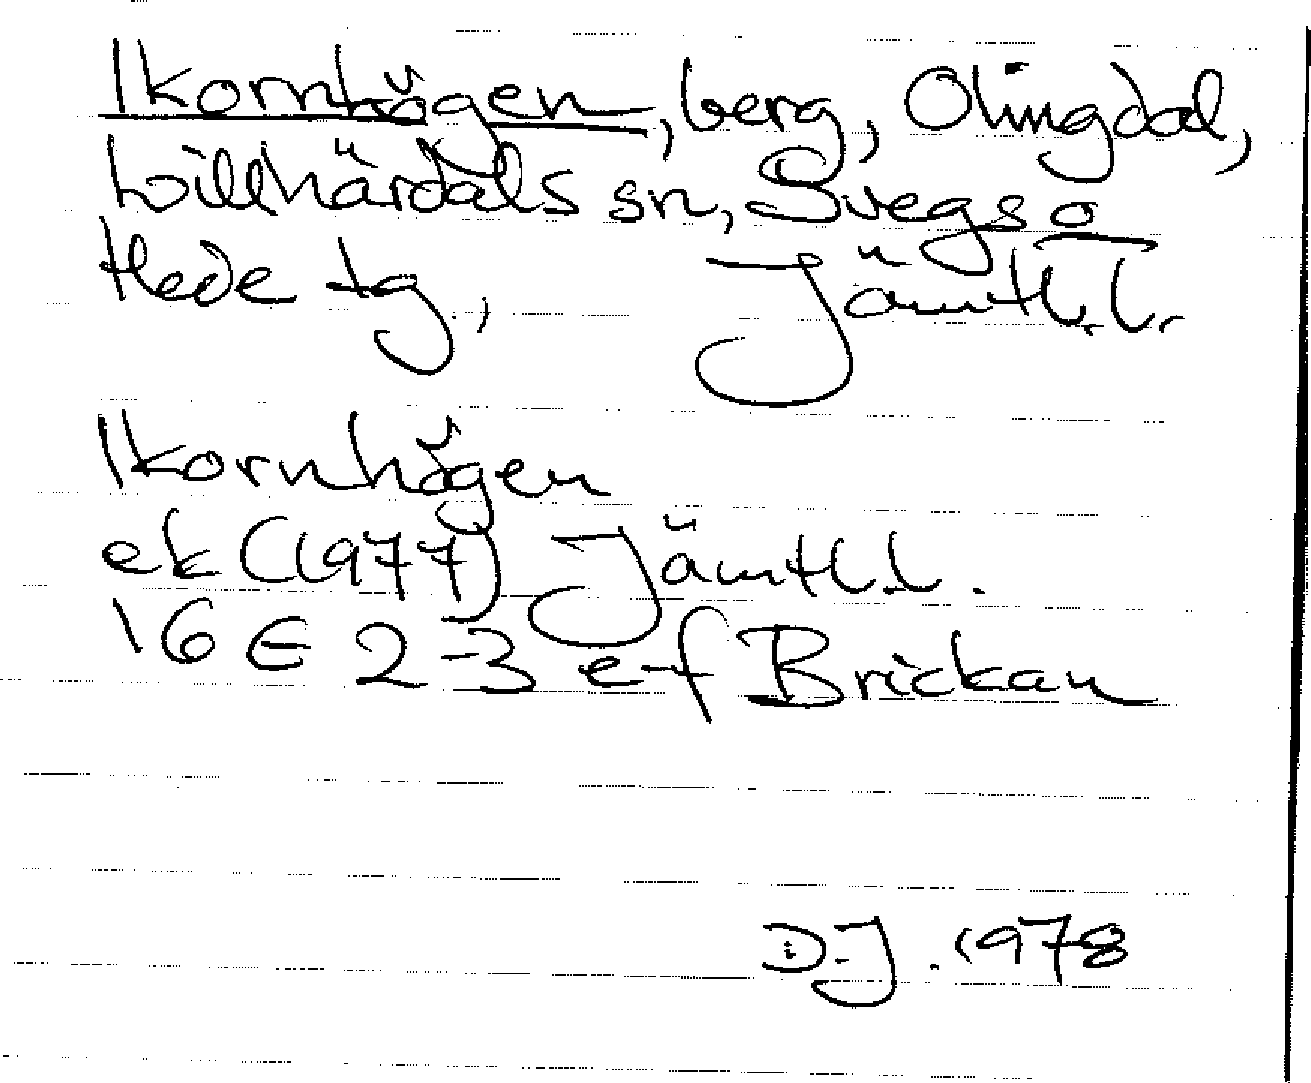 Ikornhögen, berg, Olingdal,
Lillhärdals sn, Svegs o
Hede tg, Jämtl. l.
Ikornhögen
ek (1977) Jämtl. l.
16 E 2-3 e-f Brickan
D.J. 1978